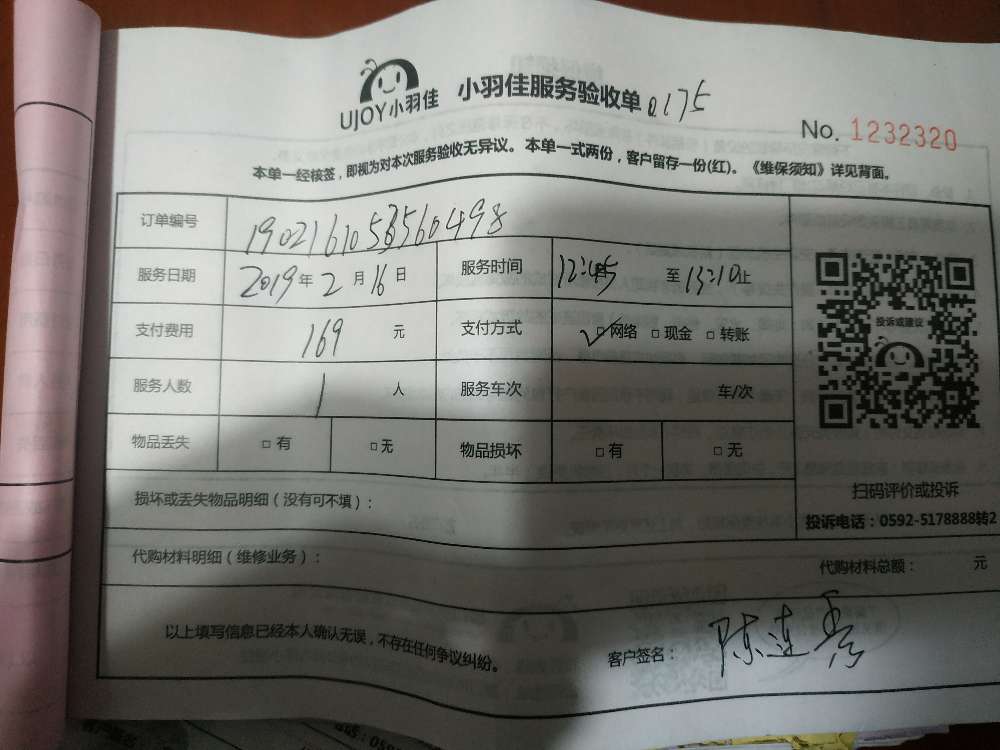 UJOY小羽佳 小羽佳服务验收单 0.175
No. 1232320
本单一经核签，即视为对本次服务验收无异议。本单一式两份，客户留存一份(红)。《维保须知》详见背面。
订单编号 19021610535604498
服务日期 2019年2月16日 服务时间 12:45 至 13:10止
支付费用 169 元 支付方式 ☑网络 □现金 □转账
服务人数 1 人 服务车次 车/次
物品丢失 □有 □无 物品损坏 □有 □无
投诉或建议
扫码评价或投诉
投诉电话：0592-5178888转2
损坏或丢失物品明细（没有可不填）：
代购材料明细（维修业务）： 代购材料总额： 元
以上填写信息已经本人确认无误，不存在任何争议纠纷。 客户签名： 陈连